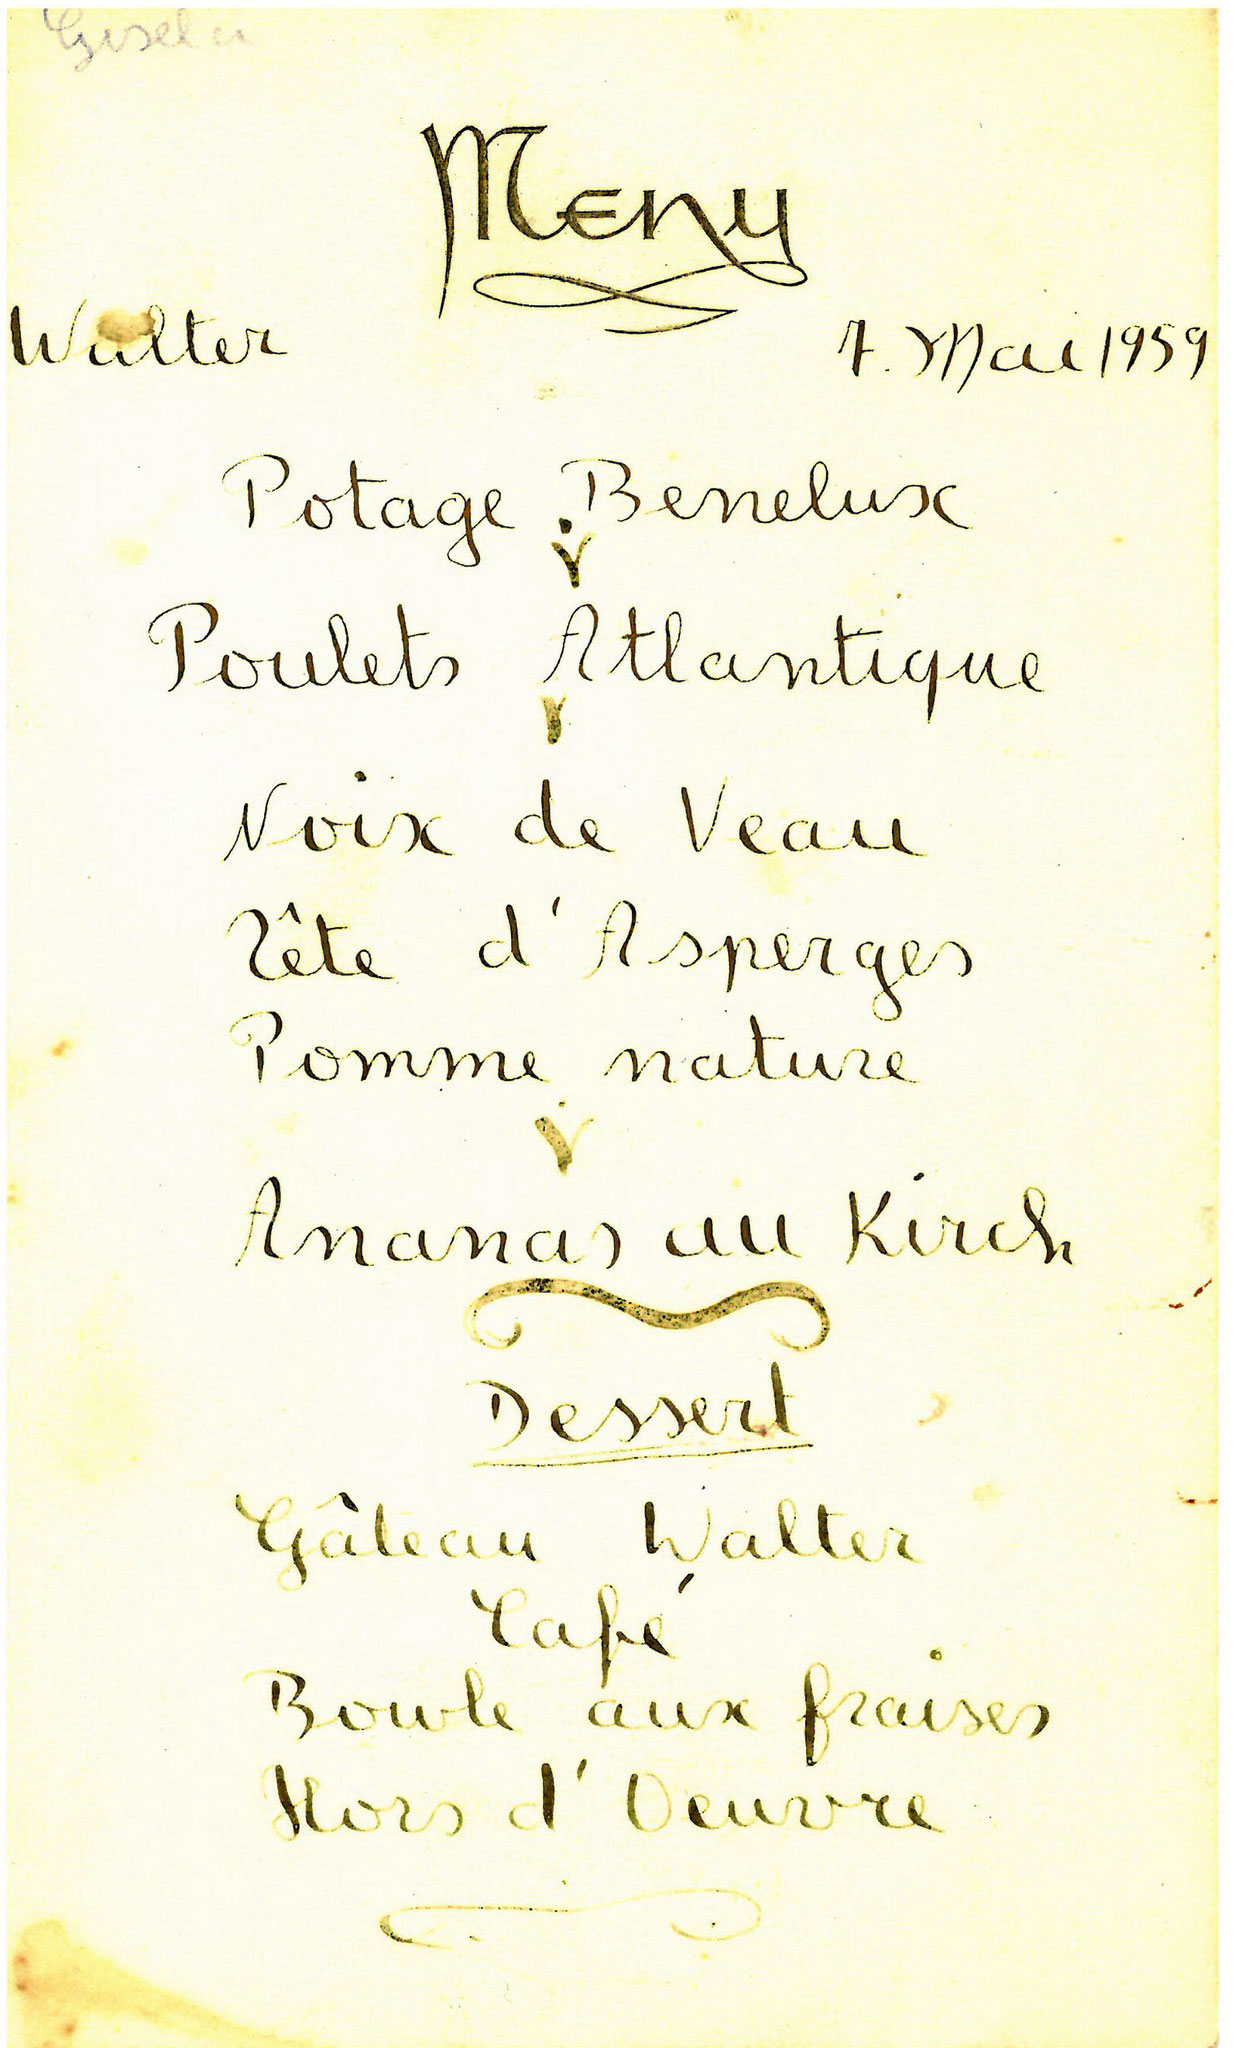 Gisela
Meny
Walter 7. Mai 1959
Potage Benelux
Poulets Atlantique
Noix de Veau
Tête d'Asperges
Pomme nature
Ananas au Kirch
Dessert
Gâteau Walter
Café
Bowle aux fraises
Hors d'Oeuvre